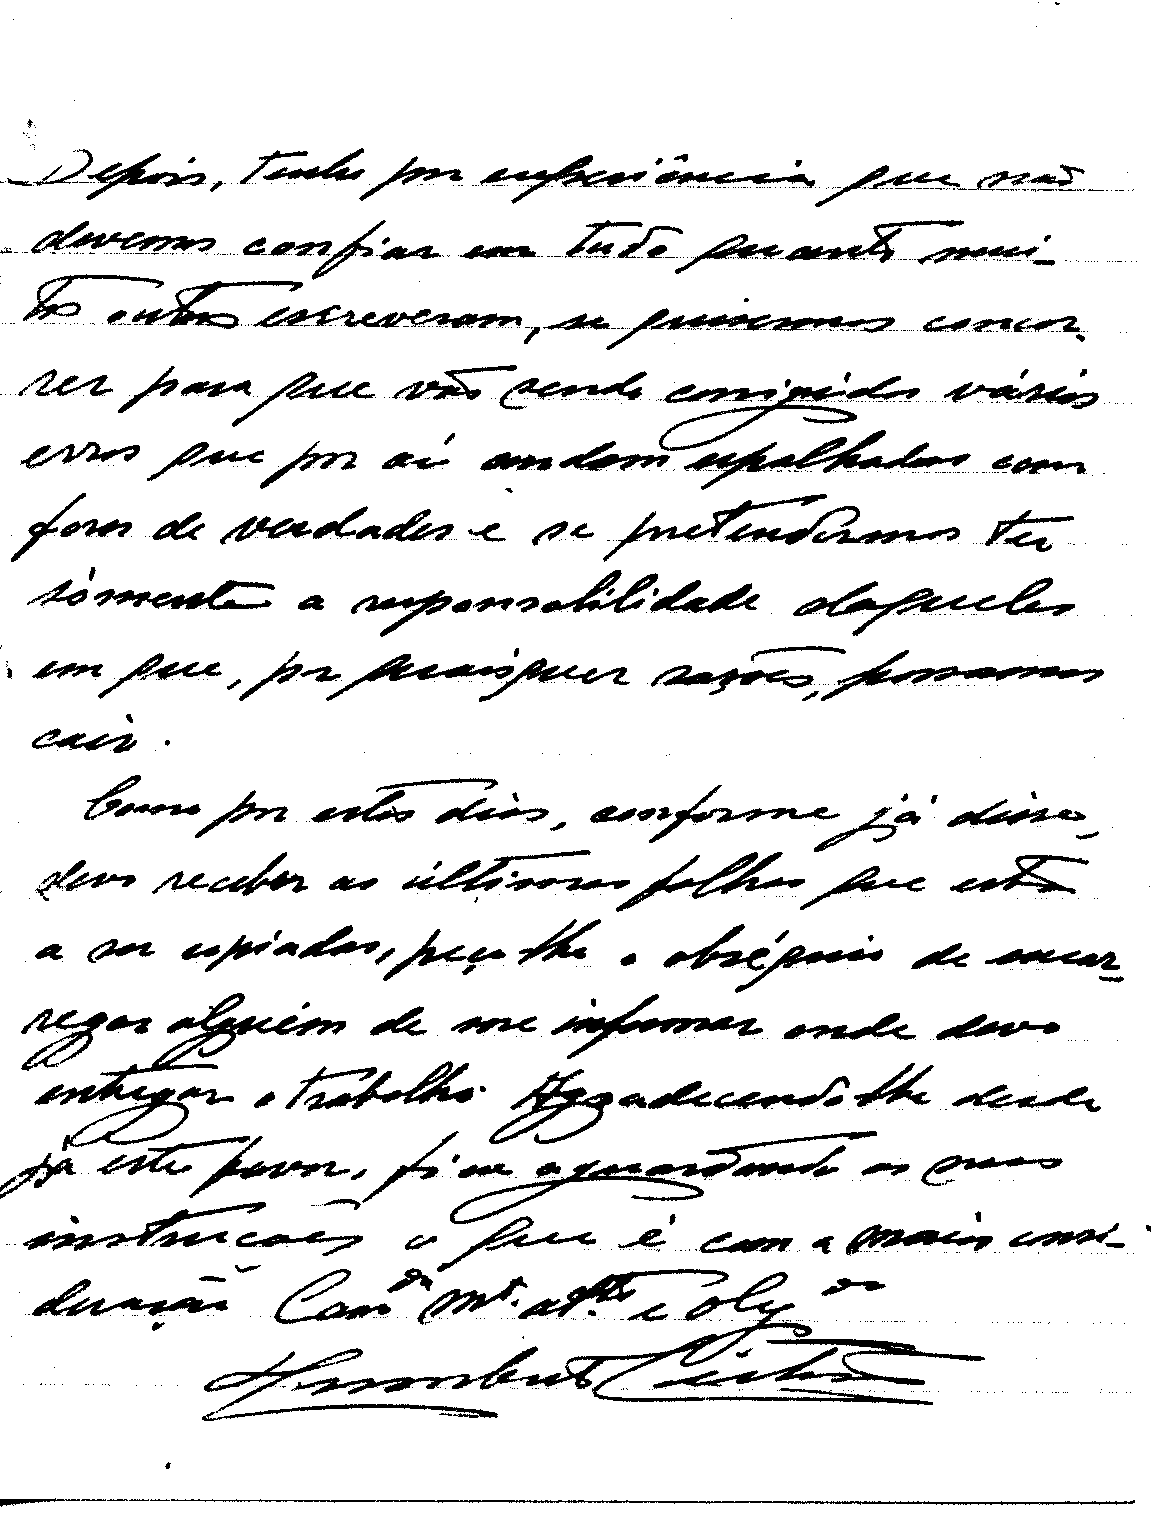 Depois, tenho por experiência que não
devemos confiar em tudo quanto mui-
tos outros escreveram, se quisermos concor-
rer para que vão sendo corrigidos vários
erros que por aí andam espalhados com
foros de verdades e se pretendermos ter
sòmente a responsabilidade daqueles
em que, por quaisquer razões, possamos
cair.
Como por estes dias, conforme já disse,
devo receber as últimas folhas que estão
a ser copiadas, peço-lhe o obséquio de encar-
regar alguém de me informar onde devo
entregar o trabalho. Agradecendo-lhe desde
já este favor, fico aguardando as suas
instruções o que é com a mais consi-
deração Camda Mto. atto e
Humberto